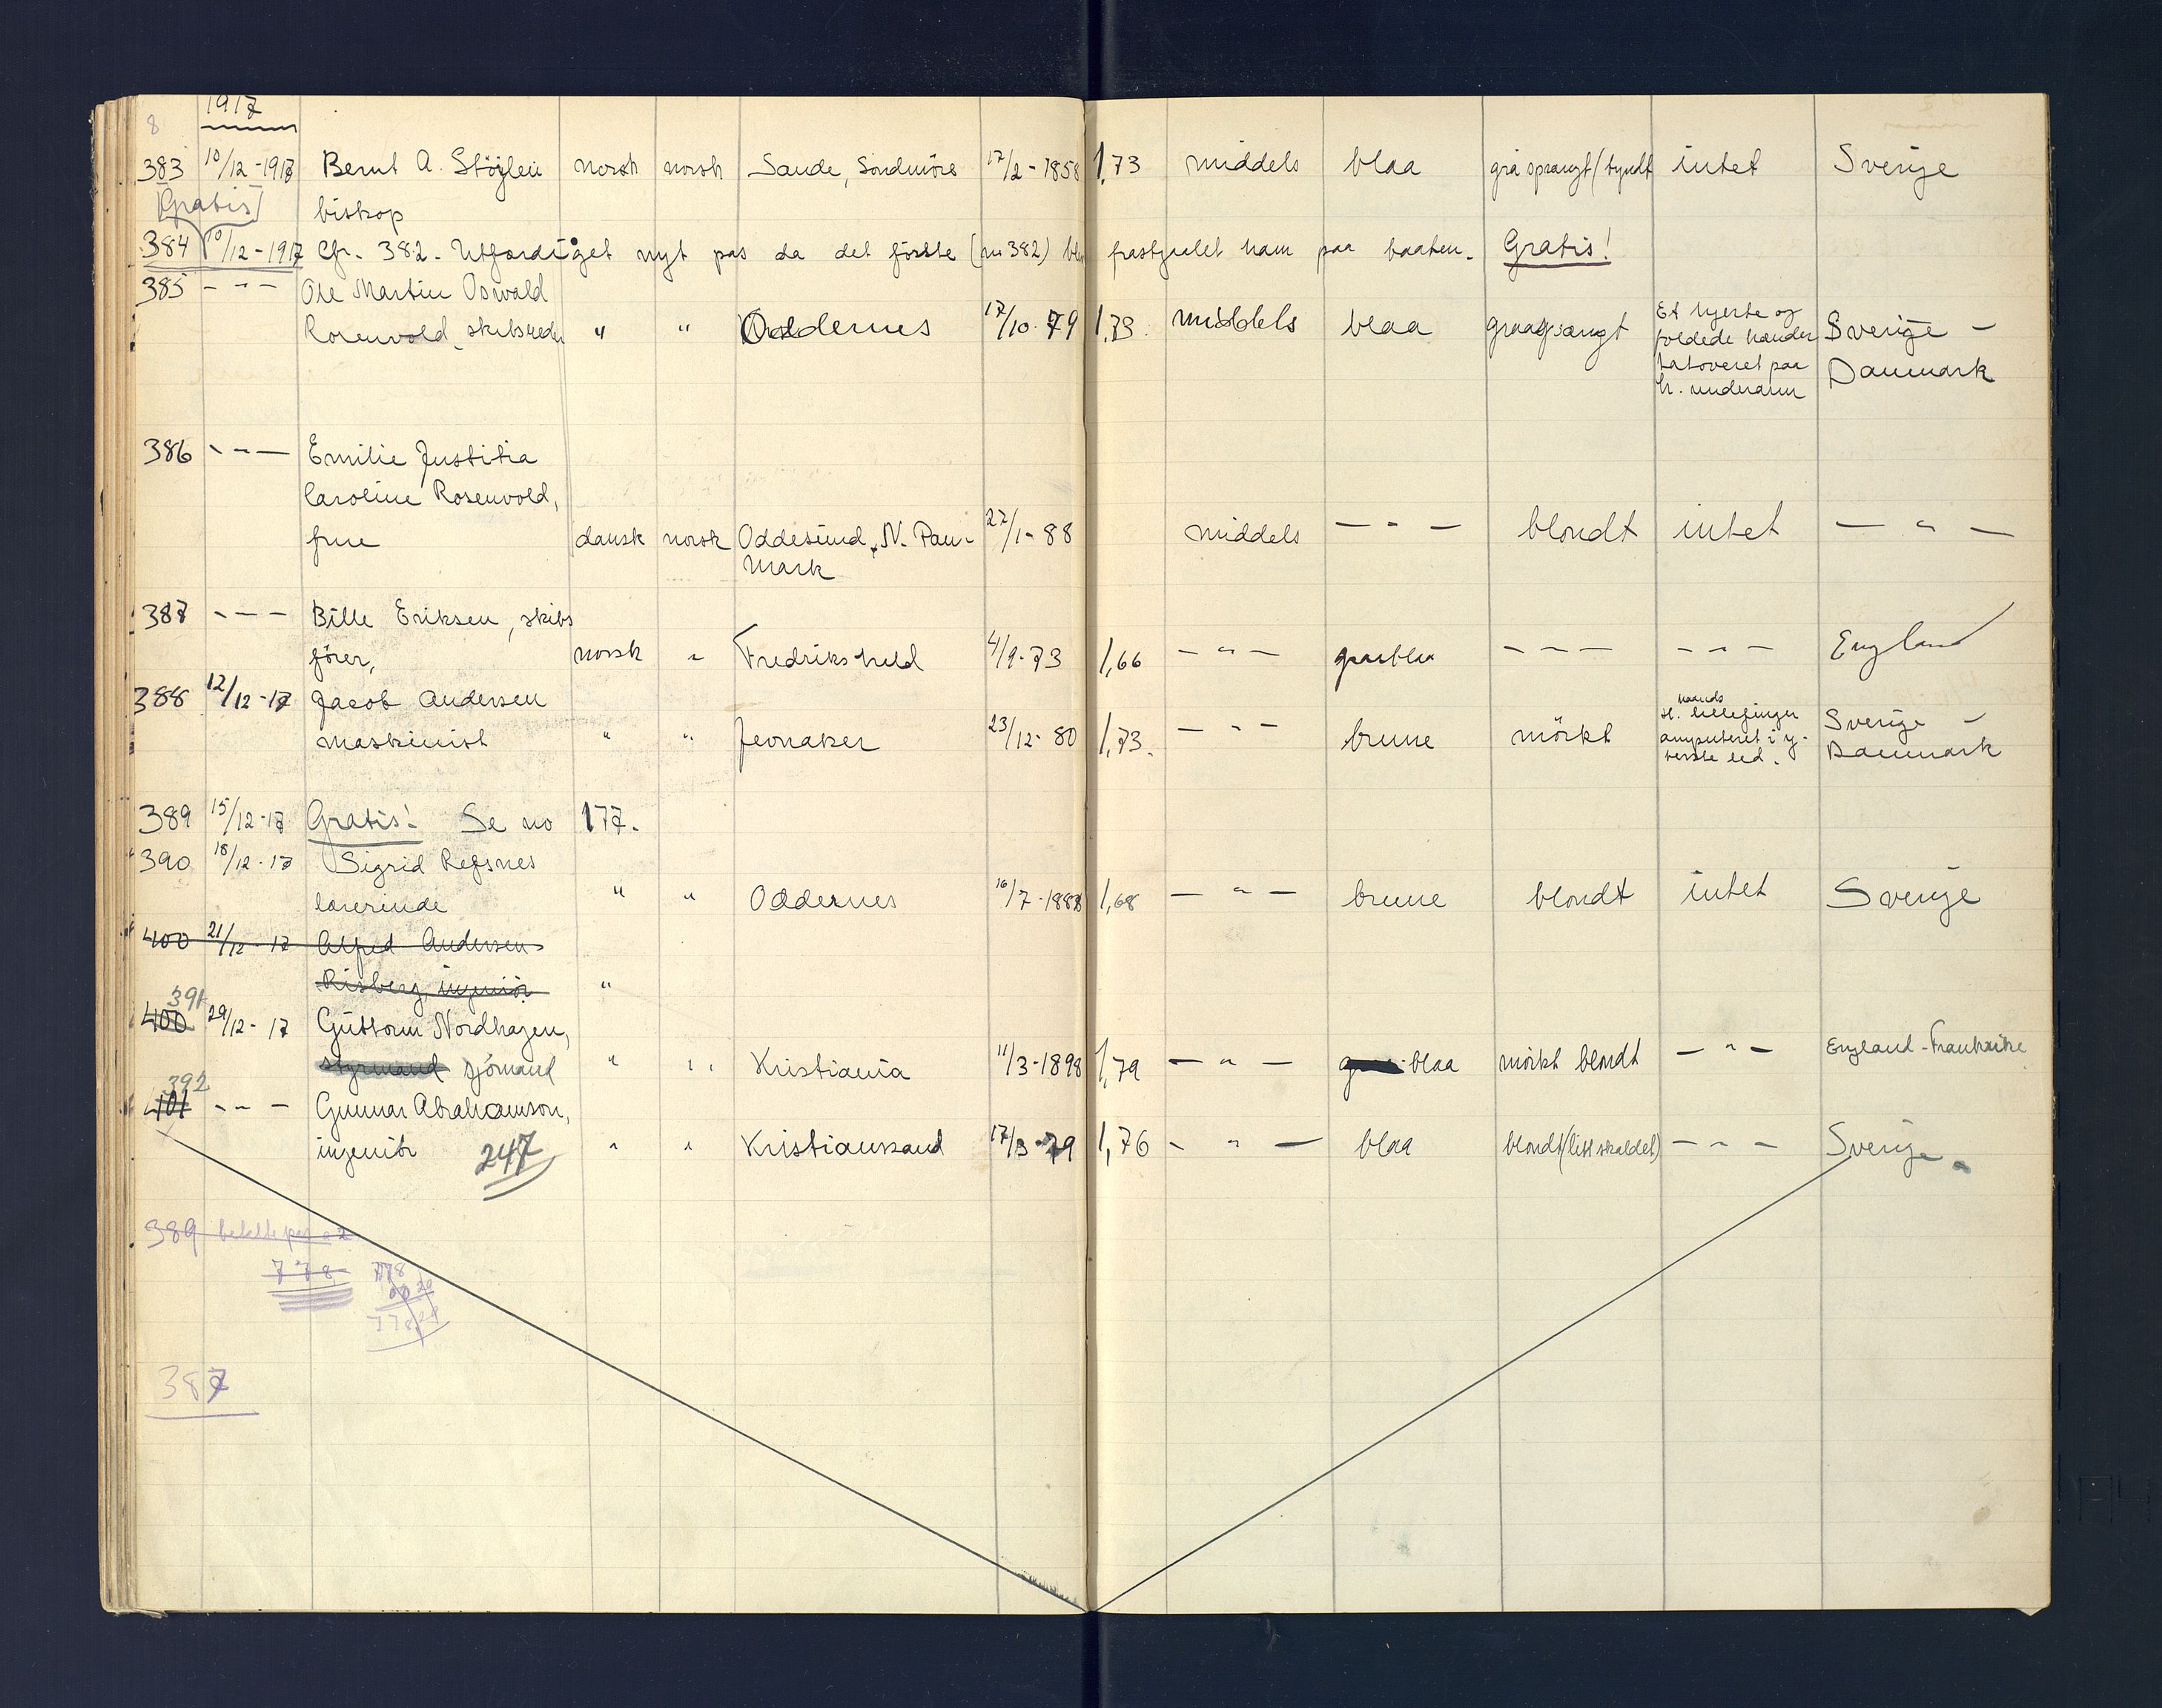 8 1917
383 10/12-1917 Bernt A. Støylen norsk norsk Sande, Söndmöre 17/2-1858 1,73 middels blaa gråsprængt (tyndt intet Sverige
[Gratis] biskop
384 10/12-1917 Cfr. 382. Utfærdiget nyt pas da det förste (nr 382) blev frastjaalet ham paa baaten. Gratis!
385 - " - Ole Martin Oswald
Rosenvold, skibsreder " " Oddernes 17/10-79 1,73. middels blaa graasprængt Et hjerte og foldede hænder tatoveret paa h. underarm Sverige - Danmark
386 - " - Emilie Justitia
Caroline Rosenvold,
frue dansk norsk Oddesund, N. Dan- 27/1-88 middels - " - blondt intet - " -
mark
387 - " - Bille Eriksen, skibs
förer, norsk " Fredrikshald 4/9-73 1,66 - " - graablaa - " - - " - England
388 12/12-17 Jacob Andersen
maskinist " " Jevnaker 23/12-80 1,73. - " - brune mörkt v. haands lillefinger amputeret i y- terste led. Sverige - Danmark
389 15/12-17 Gratis! Se no 177.
390 18/12-17 Sigrid Refsnes
lærerinde " " Oddernes 16/7-1888 1,68 - " - brune blondt intet Sverige
400 21/12-17 Alfred Andersen
Risberg, ingeniör "
391
400 29/12-17 Guttorm Nordhagen,
styrmand sjömand " " Kristiania 11/3-1898 1,79 - " - blaa mörkt blondt - " - England - Frankrike
392
401 - " - Gunnar Abrahamson,
ingeniör 247 " " Kristianssand 17/3-79 1,76 - " - blaa blondt (litt skaldet) - " - Sverige.
389
778 778
387